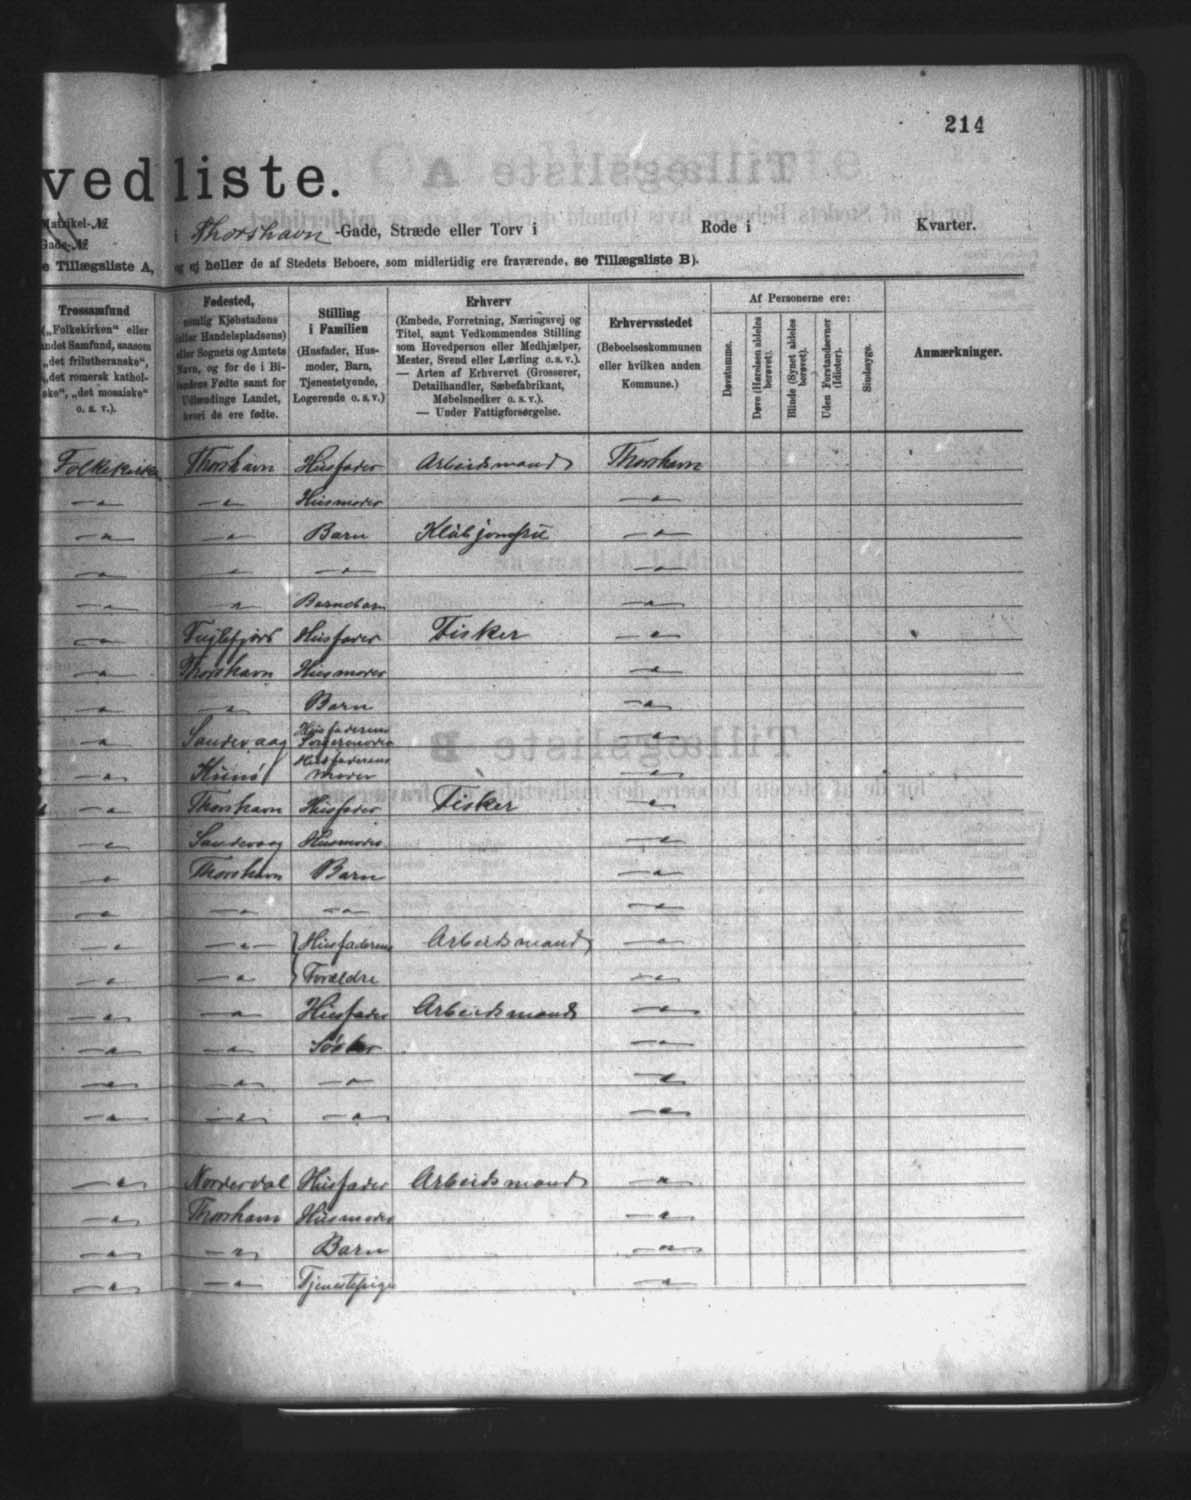 214
vedliste.
Matrikel-№
Gade-№
i Thorshavn -Gade, Stræde eller Torv i Rode i Kvarter.
e Tillægsliste A, og ej heller de af Stedets Beboere, som midlertidig ere fraværende, se Tillægsliste B).
Trossamfund
(„Folkekirken“ eller
andet Samfund, saasom
„det frilutheranske“,
„det romersk kathol-
ske“, „det mosaiske“
o. s. v.).
Fødested,
nemlig Kjøbstadens
(eller Handelspladsens)
eller Sognets og Amtets
Navn, og for de i Bi-
landene Fødte samt for
Udlændinge Landet,
hvori de ere fødte.
Stilling
i Familien
(Husfader, Hus-
moder, Barn,
Tjenestetyende,
Logerende o. s. v.)
Erhverv
(Embede, Forretning, Næringsvej og
Titel, samt Vedkommendes Stilling
som Hovedperson eller Medhjælper,
Mester, Svend eller Lærling o. s. v.).
— Arten af Erhvervet (Grosserer,
Detailhandler, Sæbefabrikant,
Møbelsnedker o. s. v.).
— Under Fattigforsørgelse.
Erhvervsstedet
(Beboelseskommunen
eller hvilken anden
Kommune.)
Af Personerne ere:
Døvstumme.
Døve (Hørelsen aldeles
berøvet).
Blinde (Synet aldeles
berøvet).
Uden Forstandsevner
(Idioter).
Sindssyge.
Anmærkninger.
Folkekirken Thorshavn Husfader Arbeidsmand Thorshavn
—〃— —〃— Husmoder —〃—
—〃— —〃— Barn —〃—
—〃— —〃— —〃— —〃—
—〃— —〃— Barnebarn —〃—
—〃— Fuglefjord Husfader Fisker —〃—
—〃— Thorshavn Husmoder —〃—
—〃— —〃— Barn —〃—
—〃— Sandevaag Husfaderens —〃—
—〃— Kunø Husfaderens Moder —〃—
—〃— Thorshavn Husfader Fisker —〃—
—〃— Sandevaag Husmoder —〃—
—〃— Thorshavn Barn —〃—
—〃— —〃— —〃— —〃—
—〃— —〃— Husfaderens Arbeidsmand —〃—
—〃— —〃— Forældre —〃—
—〃— —〃— Husfader Arbeidsmand —〃—
—〃— —〃— —〃—
—〃— —〃— —〃— —〃—
—〃— —〃— —〃— —〃—
—〃— Norderdal Husfader Arbeidsmand —〃—
—〃— Thorshavn Husmoder —〃—
—〃— —〃— Barn —〃—
—〃— —〃— Tjenestepige —〃—